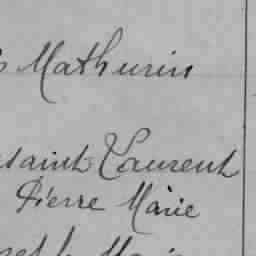 Mathurin
saint Laurent
Pierre Marie